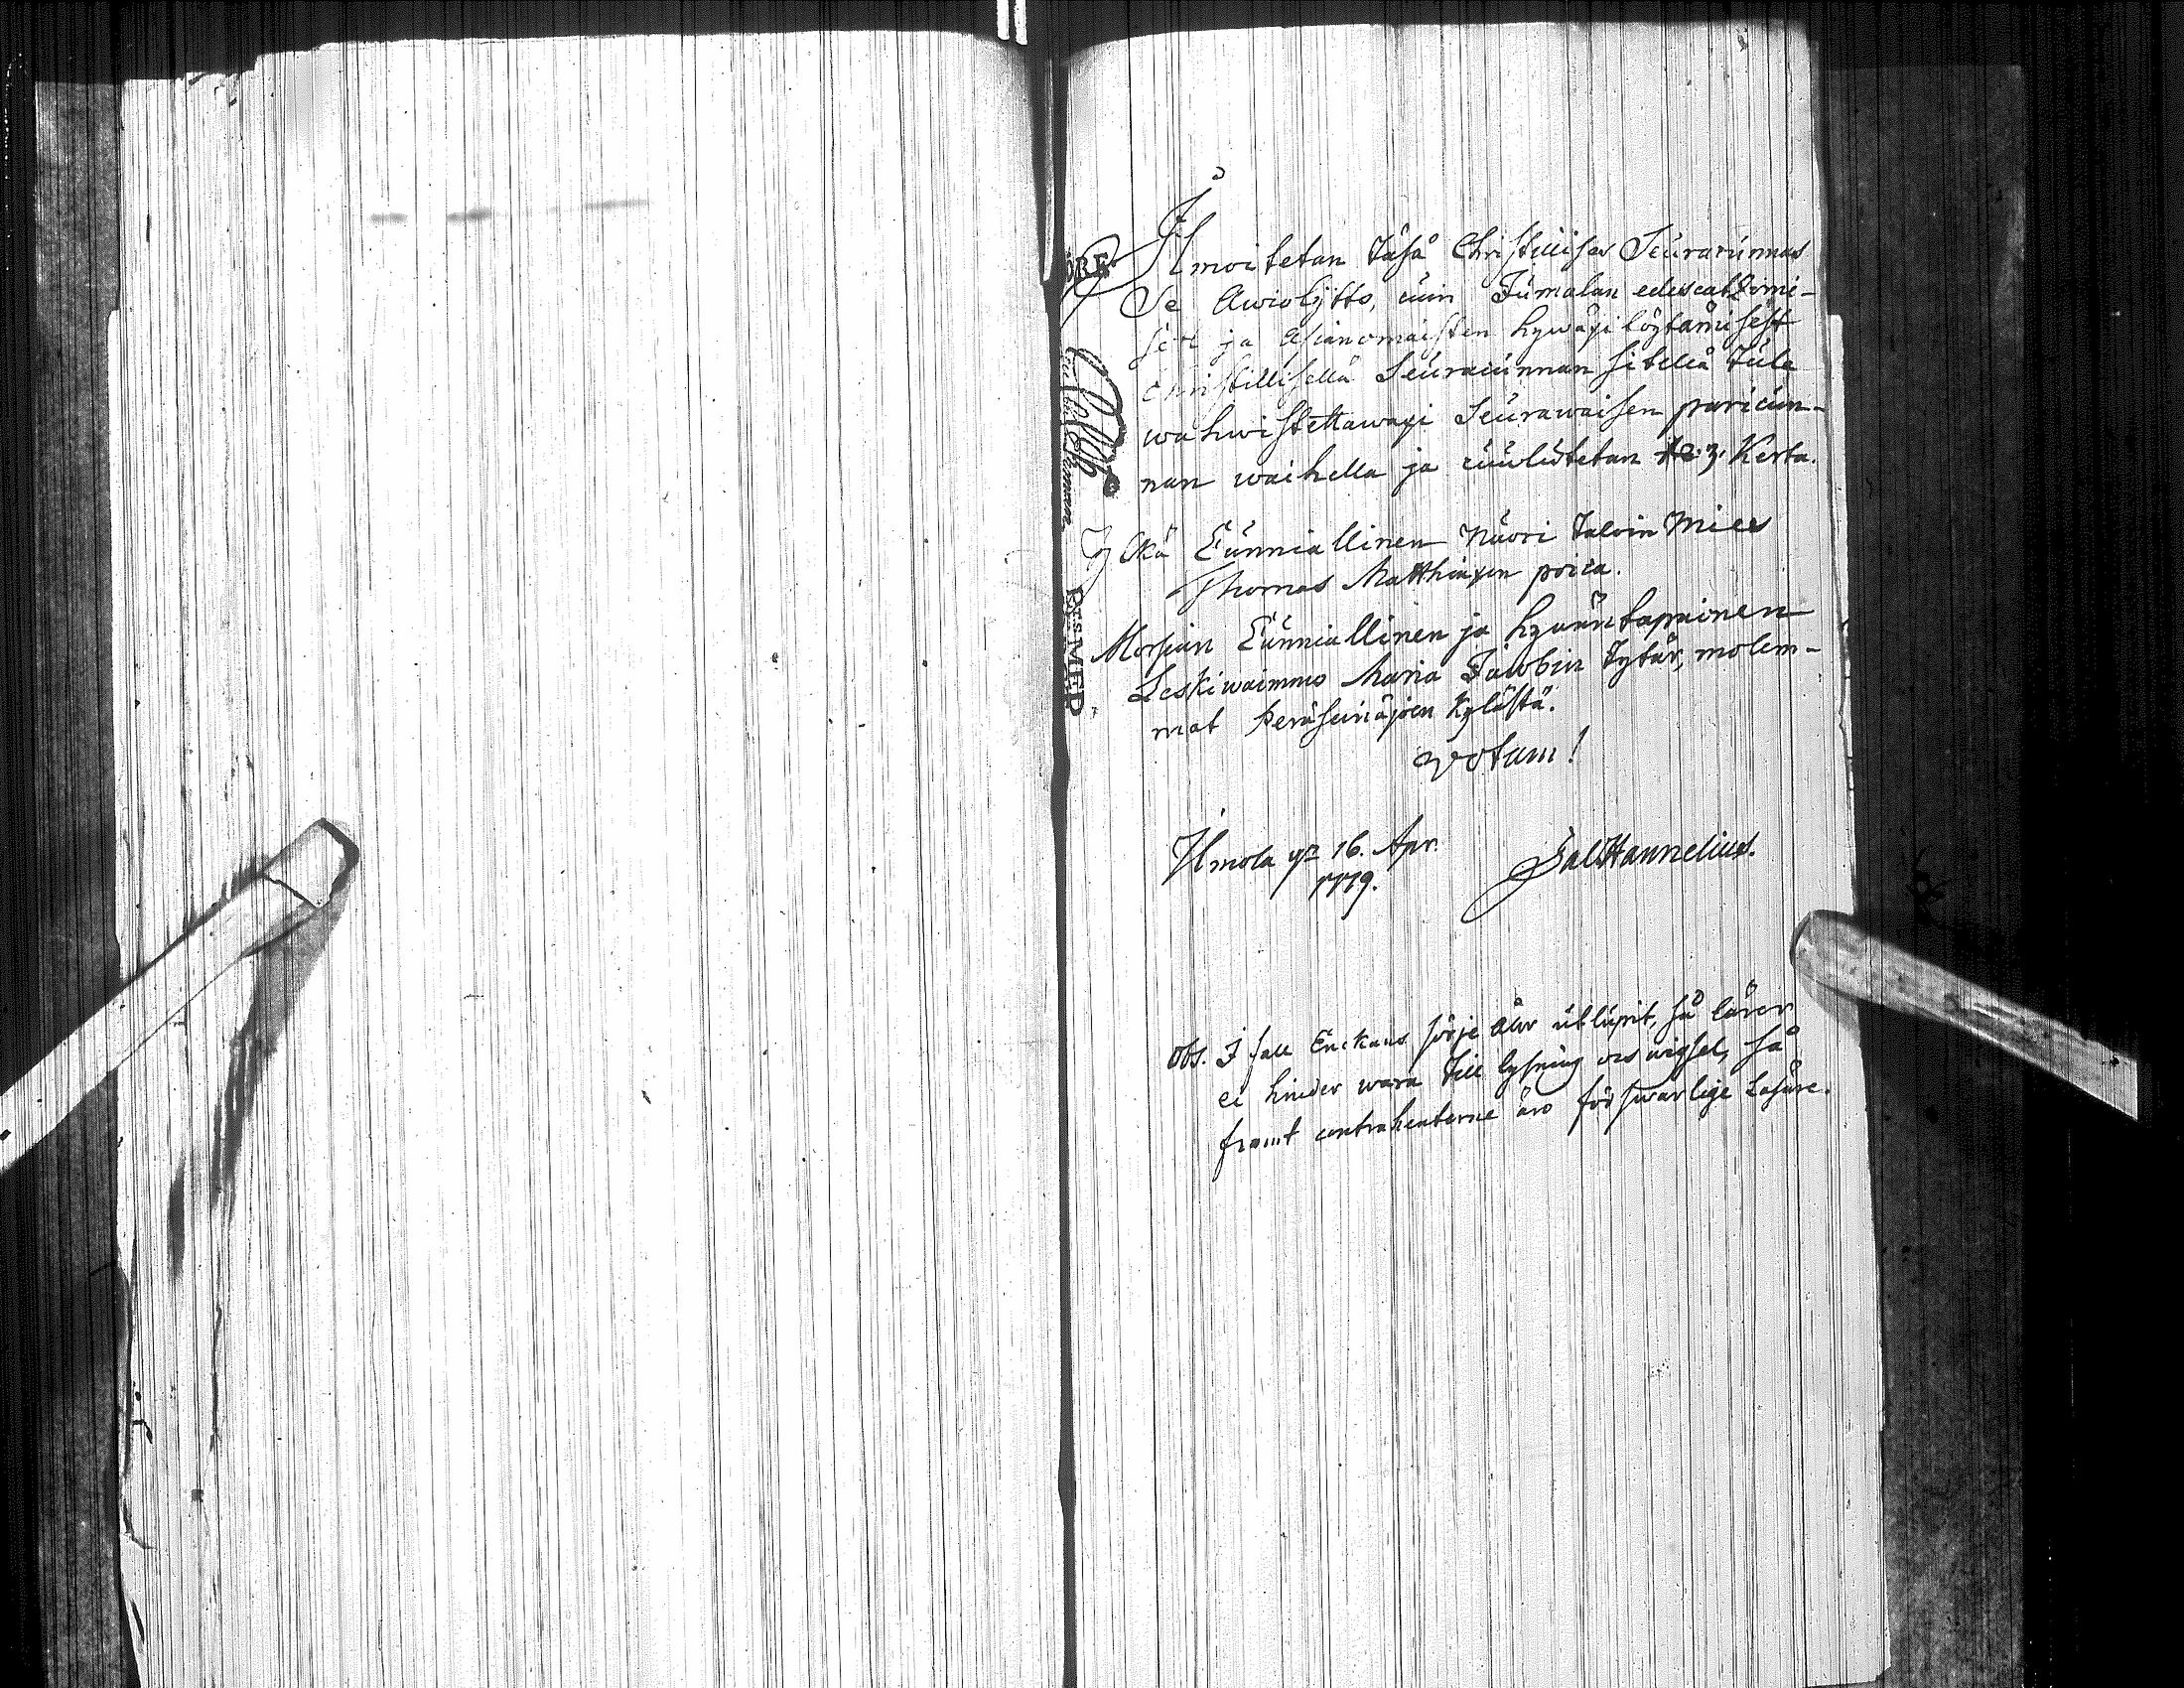 Ilmoitetan täsä Christillises Seuracunnas
Se Awioljtto, cuin Jumalan edescatzomi-
sest ja Asianomaisten hywäxi löytämisest
Christillisellä Seuracunnan sitellä tule
wahwistettawaxi Seurawaisen paricun-
nan waihella ja cuulutetan 3. Kerta.
Ylkä Cunniallinen Nuori talvin Mies
Thomas Matthiaxen poica.
Morsian Cunniallinen ja hywäntapainen
Leskiwaimmo Maria Jacobin tytär, molem-
mat Peräseinäjoen Kylästä.
Votum!
Ilmola 16. Apr.
1779.
Sal Hannelius.
Obs. I fall Enckans sörje åhr utlupit, så lärer
ei hinder wara till lysning och wigsel, så
framt contrahenterne äro förswarlige Läsare.
ÖRE